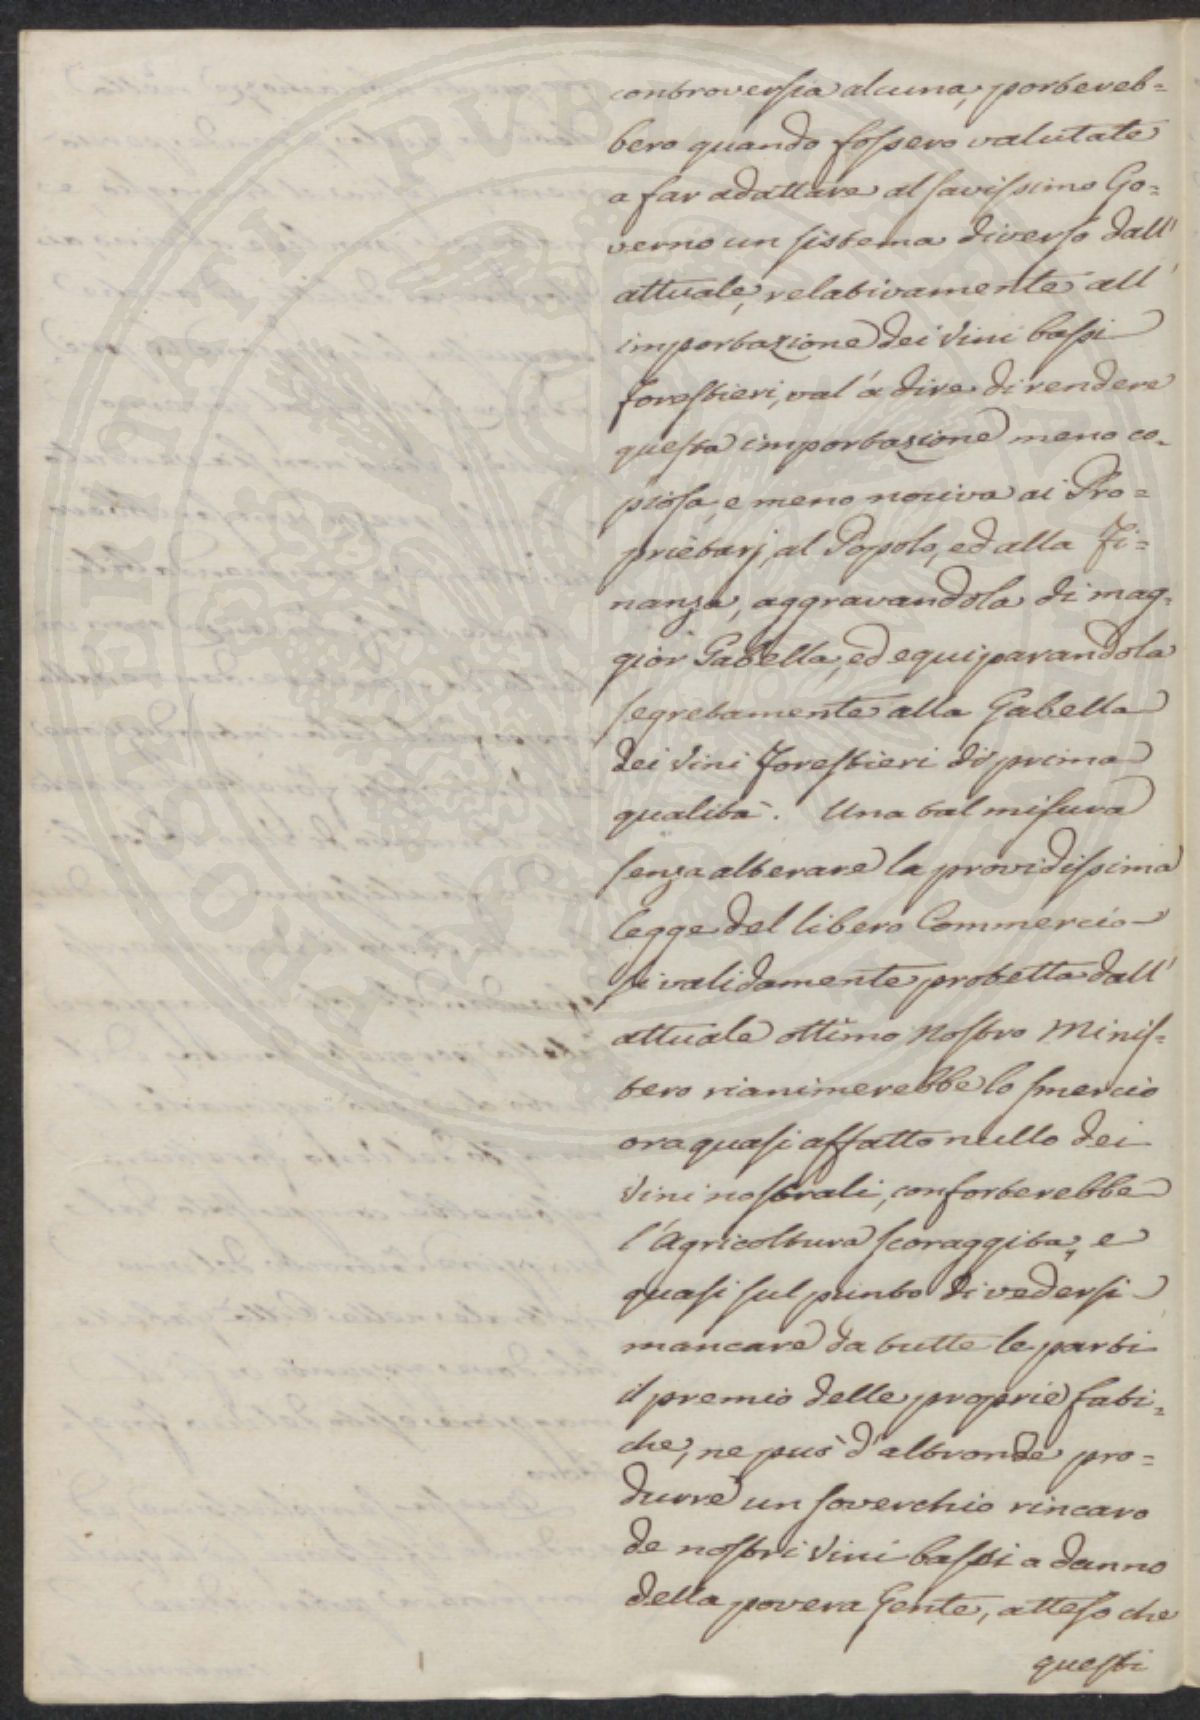 controversia alcuna, portereb=
bero quando fossero valutate
a far adattare al savissimo Go=
verno un sistema diverso dall'
attuale, relativamente all'
importazione dei Vini bassi
Forestieri, val' a dire di rendere
questa importazione meno co=
piosa, e meno nociva ai Pro=
prietarj, al Popolo, ed alla Fi=
nanza, aggravandola di mag=
gior Gabella, ed equiparandola
segretamente alla Gabella
dei Vini Forestieri di prima
qualità. Una tal misura
senza alterare la providissima
legge del libero Commercio
sì validamente protetta dall'
attuale ottimo Nostro Minis=
tero rianimerebbe lo smercio
ora quasi affatto nullo dei
Vini nostrali, conforterebbe
l'Agricoltura scoraggita, e
quasi sul punto di vedersi
mancare da tutte le parti
il premio delle proprie fati=
che, ne può d'altronde pro=
durre un soverchio rincaro
de nostri Vini bassi a danno
della povera Gente, atteso che
questi